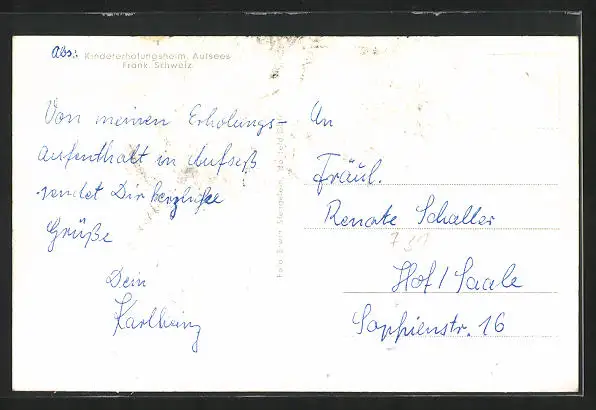 Abs: Kindererholungsheim, Aufsees
Fränk. Schweiz
Von meinen Erholungs-
aufenthalt in Aufseß
sendet Dir herzliche
Grüße
Dein
Karlheinz
An
Fräul.
Renate Schaller
Hof / Saale
Sophienstr. 16